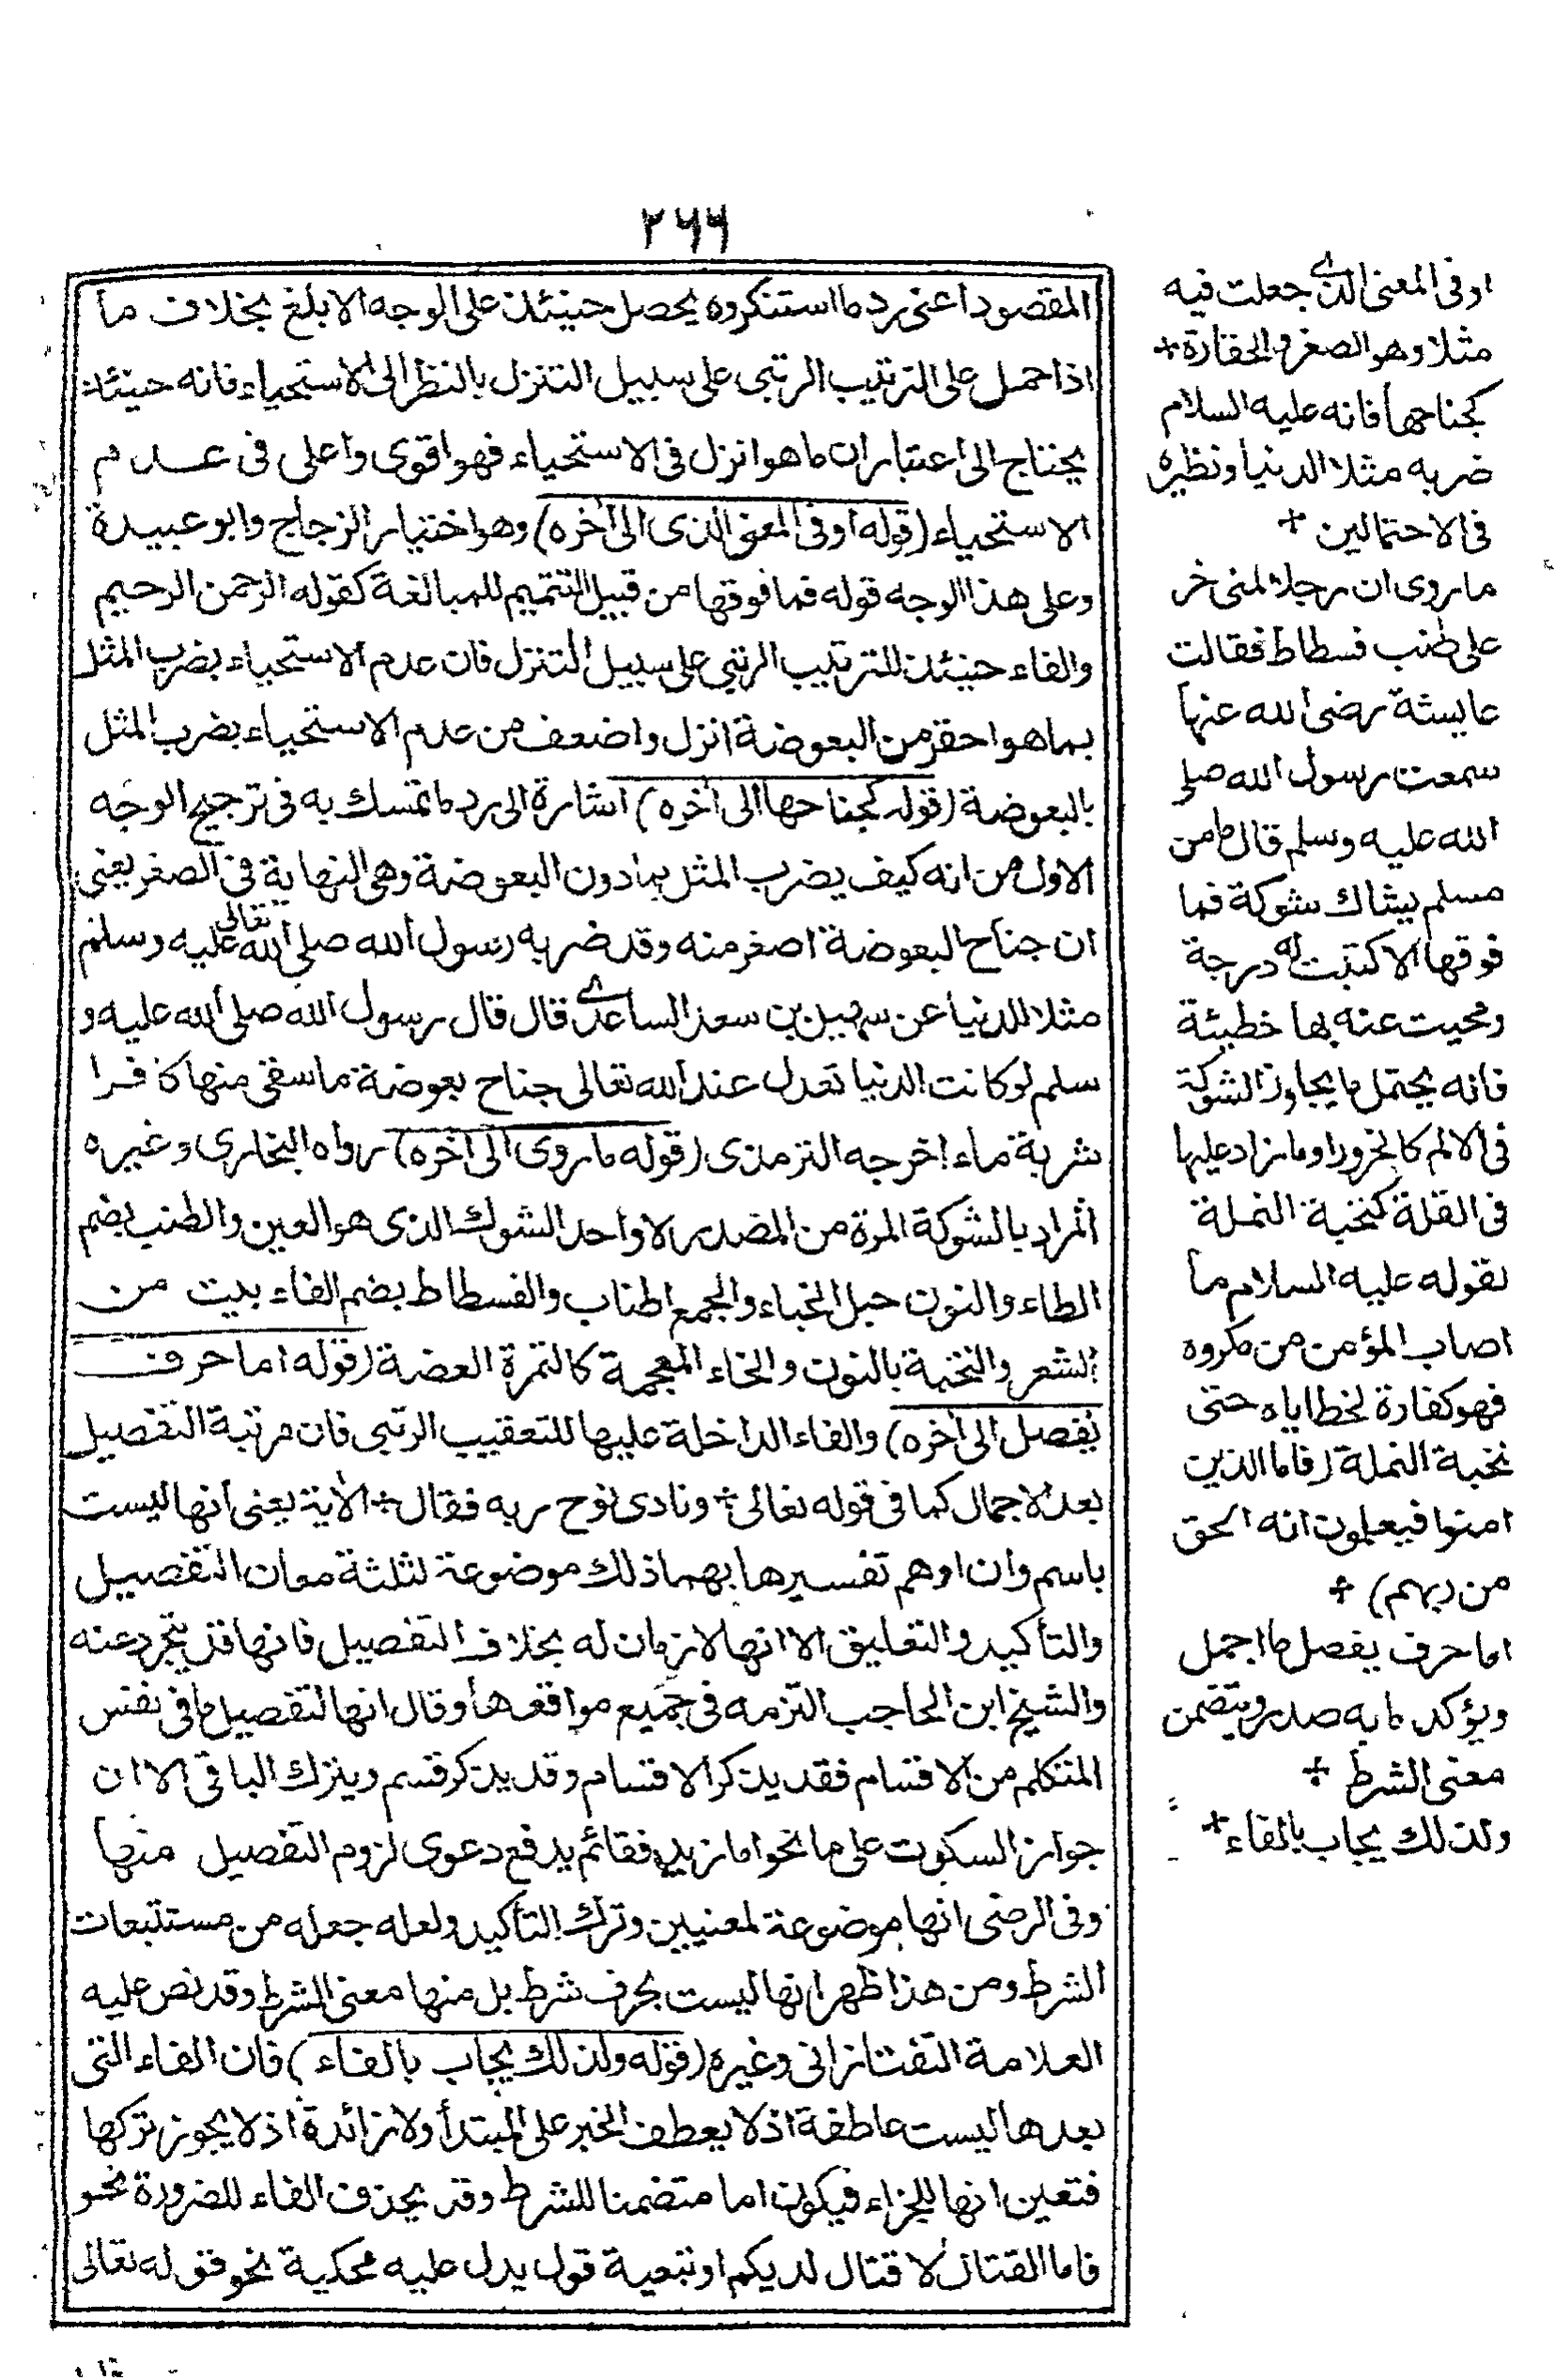 ٢٦٦
المقصود اعنى رد ما استنكروه يحصل حينئذ على الوجه الابلغ بخلاف ما
اذا حمل على الترتيب الرتبى على سبيل التنزل بالنظر الى الاستحياء فانه حينئذ
يحتاج الى اعتبار ان ما هو انزل فى الاستحياء فهو اقوى واعلى فى عدم
الاستحياء (قوله او فى المعنى الذى الى اخره) وهو اختيار الزجاج وابو عبيدة
وعلى هذا الوجه قوله فما فوقها من قبيل التتميم للمبالغة كقوله الرحمن الرحيم
والفاء حينئذ للترتيب الرتبى على سبيل التنزل فان عدم الاستحياء بضرب المثل
بما هو احقر من البعوضة انزل واضعف من عدم الاستحياء بضرب المثل
بالبعوضة (قوله كجناحها الى اخره) اشارة الى رد ما تمسك به فى ترجيح الوجه
الاول من انه كيف يضرب المثل بما دون البعوضة وهى النهاية فى الصغر يعنى
ان جناح البعوضة اصغر منه وقد ضربه رسول الله صلى الله تعالى عليه وسلم
مثلا للدنيا عن سهيل بن سعد الساعدى قال قال رسول الله صلى الله عليه و
سلم لو كانت الدنيا تعدل عند الله تعالى جناح بعوضة ما سقى منها كافرا
شربة ماء اخرجه الترمذى (قوله ما روى الى اخره) رواه البخارى وغيره
المراد بالشوكة المرة من المصدر لا واحد الشوك الذى هو العين والطنب بضم
الطاء والنون حبل الخباء والجمع اطناب والفسطاط بضم الفاء بيت من
الشعر والنخبة بالنون والخاء المعجمة كالتمرة العضة (قوله اما حرف
يفصل الى اخره) والفاء الداخلة عليها للتعقيب الرتبى فان مرتبة التفصيل
بعد الاجمال كما فى قوله تعالى ÷ ونادى نوح ربه فقال ÷ الأية يعنى انها ليست
باسم وان اوهم تفسيرها بهما ذلك موضوعة لثلثة معان التفصيل
والتأكيد والتعليق الا انها لازمان له بخلاف التفصيل فانها قد يتجرد عنه
والشيخ ابن الحاجب التزمه فى جميع مواقعها وقال انها لتفصيل ما فى نفس
المتكلم من الاقسام فقد يذكر الاقسام وقد يذكر قسم ويترك الباقى الا ان
جواز السكوت على ما نحو اما زيد فقائم يدفع دعوى لزوم التفصيل منها
وفى الرضى انها موضوعة لمعنيين وترك التأكيد ولعله جعله من مستتبعات
الشرط ومن هذا ظهر انها ليست بحرف شرط بل منها معنى الشرط وقد نص عليه
العلامة التفتازانى وغيره (قوله ولذلك يجاب بالفاء) فان الفاء التى
بعدها ليست عاطفة اذ لا يعطف الخبر على المبتدأ ولا زائدة اذ لا يجوز تركها
فتعين انها للجزاء فيكون اما متضمنا للشرط وقد يحذف الفاء للضرورة نحو
فاما القتال لا قتال لديكم او تبعية قول يدل عليه محكية نحو قوله تعالى
او فى المعنى الذى جعلت فيه
مثلا وهو الصغر والحقارة ÷
كجناحها فانه عليه السلام
ضربه مثلا الدنيا ونظيره
فى الاحتمالين ÷
ما روى ان رجلا بمنى خر
على طنب فسطاط فقالت
عايشة رضى الله عنها
سمعت رسول الله صلى
الله عليه وسلم قال ما من
مسلم يشاك شوكة فما
فوقها الا كتبت له درجة
ومحيت عنه بها خطيئة
فانه يحتمل ما يجاوز الشوكة
فى الالم كالخرور او ما زاد عليها
فى القلة كنخبة النملة
لقوله عليه السلام ما
اصاب المؤمن من مكروه
فهو كفارة لخطاياه حتى
نخبة النملة (فاما الذين
امنوا فيعلمون انه الحق
من ربهم) ÷
اما حرف يفصل ما اجمل
ويؤكد ما به صدر ويتضمن
معنى الشرط ÷
ولذلك يجاب بالفاء ÷